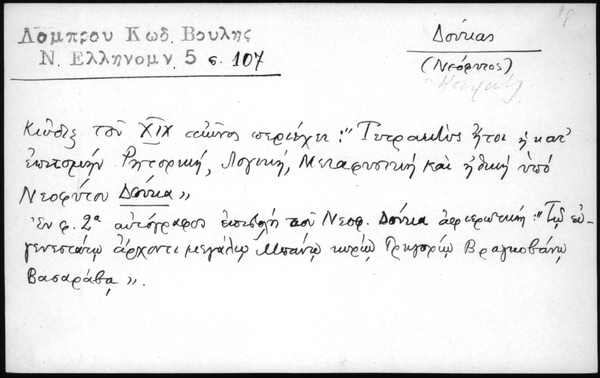 Λαμπρου Κωδ. Βουλης
Ν. Ελληνομν. 5 σ. 107
Δούκας
(Νεόφυτος)
Κώδιξ τοῦ XIX αἰῶνος περιέχει: "Τετρακτὺς ἤτοι ἡ κατ'
ἐπιτομὴν Ρητορική, Λογική, Μεταφυσική καὶ ἠθική ὑπὸ
Νεοφύτου Δούκα"
Ἐν φ. 2α αὐτόγραφος ἐπιστολὴ τοῦ Νεοφ. Δούκα ἀφιερωτική: "Τῷ εὐ-
γενεστάτῳ ἄρχοντι μεγάλῳ Μπάνῳ κυρίῳ Γρηγορίῳ Βραγκοβάνῳ
Βασαράβᾳ".